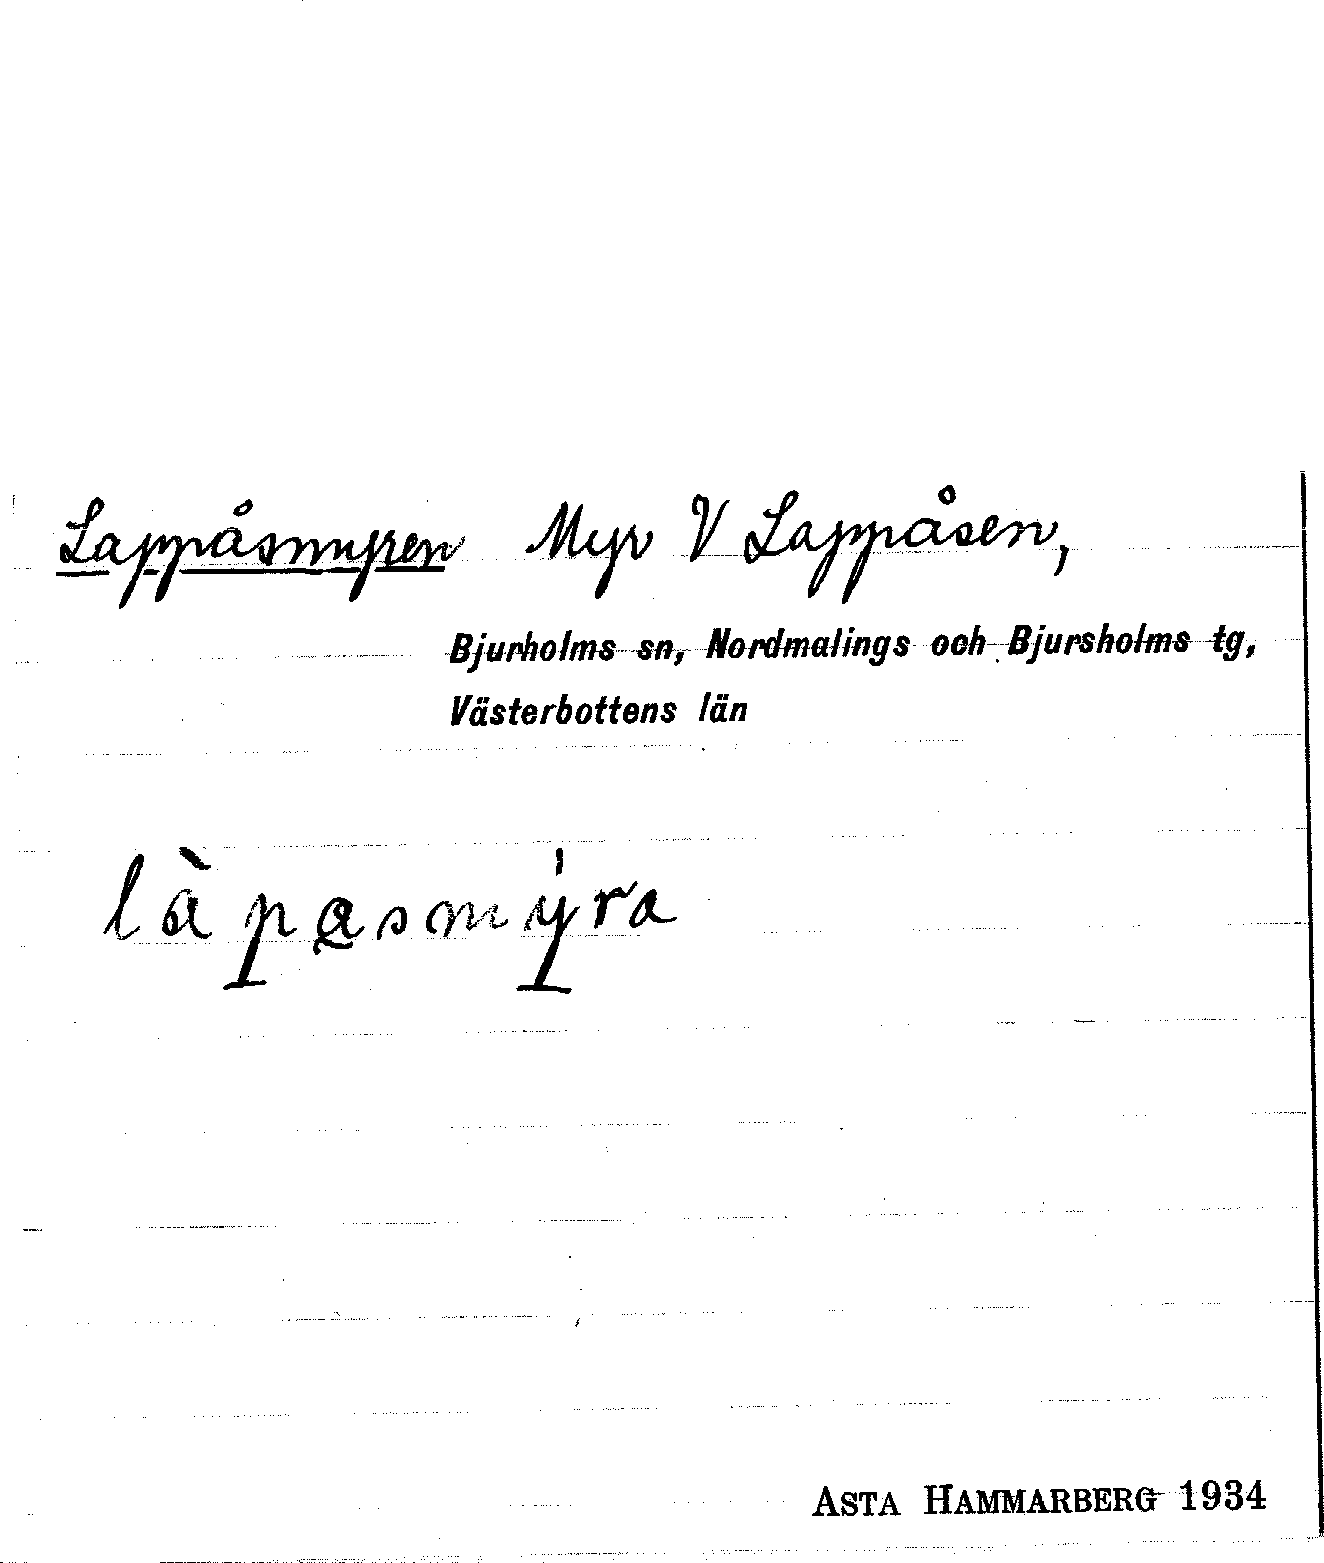 Lappåsmyren Myr V Lappåsen,
Bjurholms sn, Nordmalings och Bjursholms tg,
Västerbottens län
làpasmýra
ASTA HAMMARBERG 1934